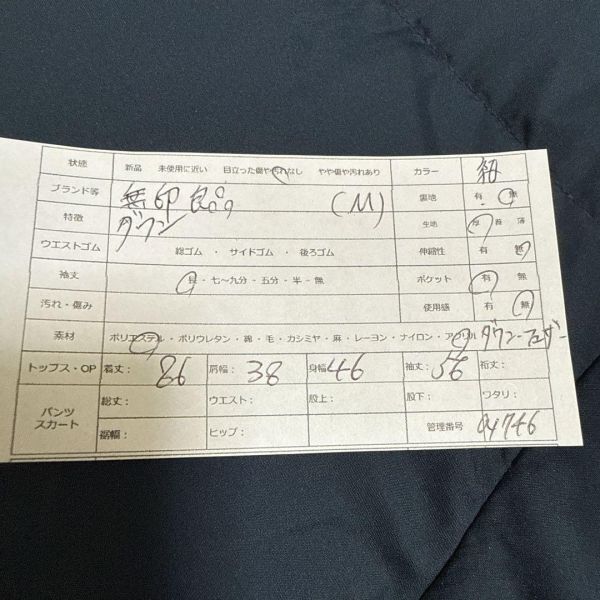 状態 新品 未使用に近い 目立った傷や汚れなし やや傷や汚れあり カラー 紺
ブランド等 無印良品 (M) 裏地 有・無
特徴 ダウン 生地 厚 普 薄
ウエストゴム 総ゴム ・ サイドゴム ・ 後ろゴム 伸縮性 有 無
袖丈 長・七～九分・五分・半・無 ポケット 有 無
汚れ・傷み 使用感 有 無
素材 ポリエステル・ポリウレタン・綿・毛・カシミヤ・麻・レーヨン・ナイロン・アクリル ダウン・フェザー
トップス・OP 着丈: 86 肩幅: 38 身幅 46 袖丈: 56 裄丈:
パンツ スカート 総丈: ウエスト: 股上: 股下: ワタリ:
裾幅: ヒップ: 管理番号